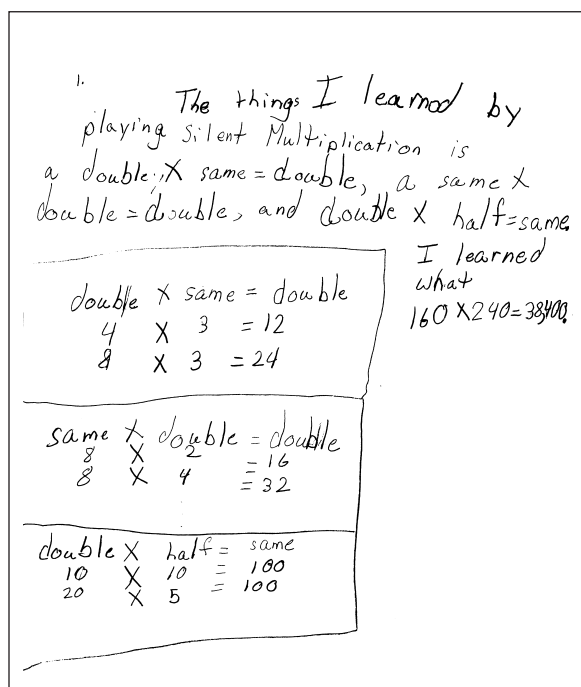 1.
The things I learnod by
playing Silent Multiplication is
a double, X same = double, a same X
double = double, and double X half = same.
I learned
what
160 X 240 = 38,400.
double X same = double
4 X 3 = 12
8 X 3 = 24
same X double = double
8 X 2 = 16
8 X 4 = 32
double X half = same
10 X 10 = 100
20 X 5 = 100